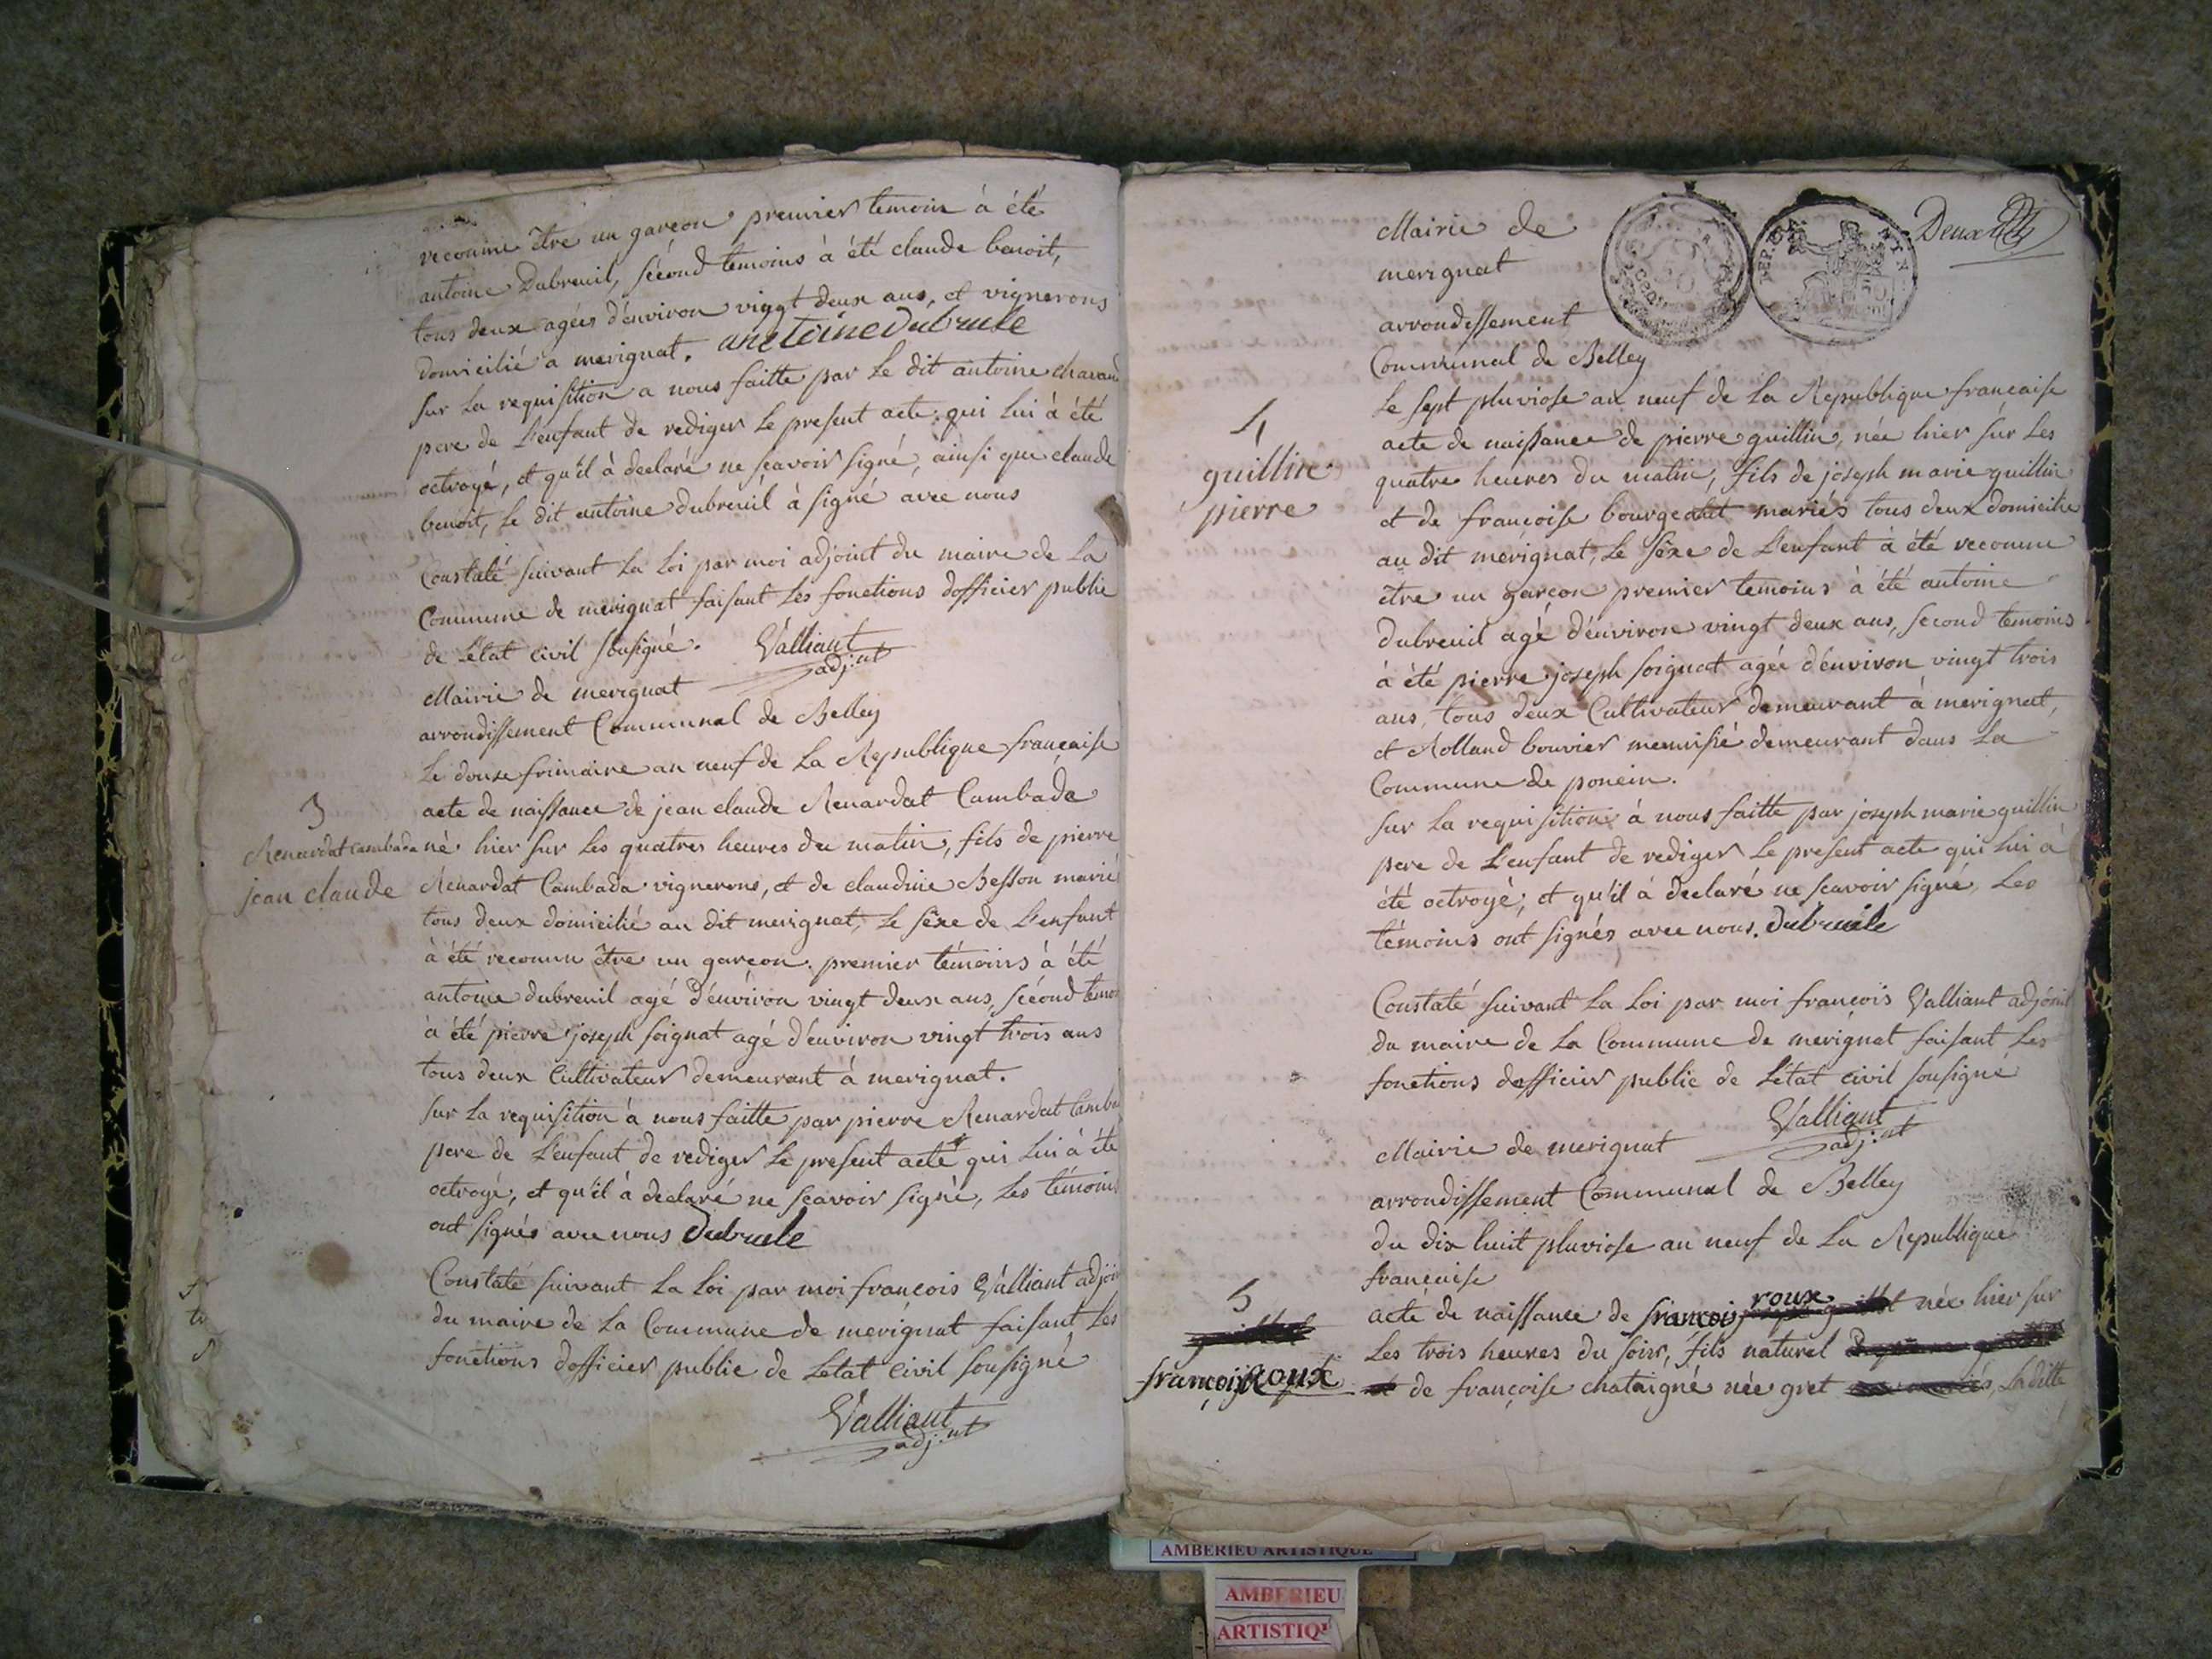 reconnu être un garçon premier temoin à été
antoine Dubreuil, sécond temoins à été claude benoit,
tous deux agées d'environ viggt deux ans, et vignerons
domicilié a merignat. anetoine dubruile
sur la requisition a nous faitte par le dit antoine
pere de l'enfant de rediger le present acte qui lui à été
octroyé, et qu'il à declaré ne scavoir signé, ainsi que claude
benoit, le dit antoine dubreuil à signé avec nous
Constaté suivant la loi par moi adjoint du maire de la
Commune de merignat faisant les fonctions dofficier public
de létat civil sousigné. Valliant
adj:nt
Mairie de merignat
arrondissement Communal de Belley
Le douse frimaire an neuf de la Republique francaise
3
acte de naissance de jean claude Renardat Cambada
Renardat Cambada
né hier sur les quatres heures du matin, fils de pierre
jean claude
Renardat Cambada vignerons, et de claudine Besson marié
tous deux domicilié au dit merignat, le séxe de l'enfant
à été reconnu être un garcon. premier témoins à été
antoine dubreuil agé d'énviron vingt deux ans, sécond
à été pierre joseph soignat agé d'énviron vingt trois ans
tous deux Cultivateur demeurant à merignat.
sur la requisition à nous faitte par pierre Renardat
pere de l'enfant de rediger le present acte qui lui à été
octroyé, et qu'il à declaré ne scavoir signé, les témoins
ont signés avec nous Dubruile
Constaté suivant la loi par moi francois Valliant
du maire de la Commune de merignat faisant les
fonctions dofficier public de létat civil sousigné
Valliant
adj:nt
Mairie de
merignat
Deux
arrondissement
Communal de Belley
Le sept pluviose an neuf de la Republique francaise
4
guillin
pierre
acte de naissance de pierre guillin, née hier sur les
quatre heures du matin, fils de joseph marie guillin
et de francoise mariés tous deux domicilie
au dit merignat, le séxe de l'enfant à été reconnu
être un garcon premier temoins à été antoine
dubreuil agé d'énviron vingt deux ans, second temoins
à été pierre joseph soignat agée d'énviron vingt trois
ans, tous deux Cultivateur demeurant à merignat,
et Rolland bouvier menuisié demeurant dans la
Commune de poncin.
sur la requisition à nous faitte par joseph marie guillin
pere de l'enfant de rediger le present acte qui lui à
été octroyé, et qu'il à declaré ne scavoir signé, les
témoins ont signés avec nous. Dubruile
Constaté suivant la loi par moi francois Valliant adjoint
du maire de la Commune de merignat faisant les
fonctions dofficier public de létat civil sousigné
Valliant
adj:nt
Mairie de merignat
arrondissement Communal de Belley
du dix huit pluviose an neuf de la Republique
francaise
5
françois Roux
acte de naissance de francois roux née hier sur
les trois heures du soirs, fils naturel
de françoise chataigné née gret laditte
AMBERIEU ARTISTIQUE
AMBERIEU
ARTISTIQU